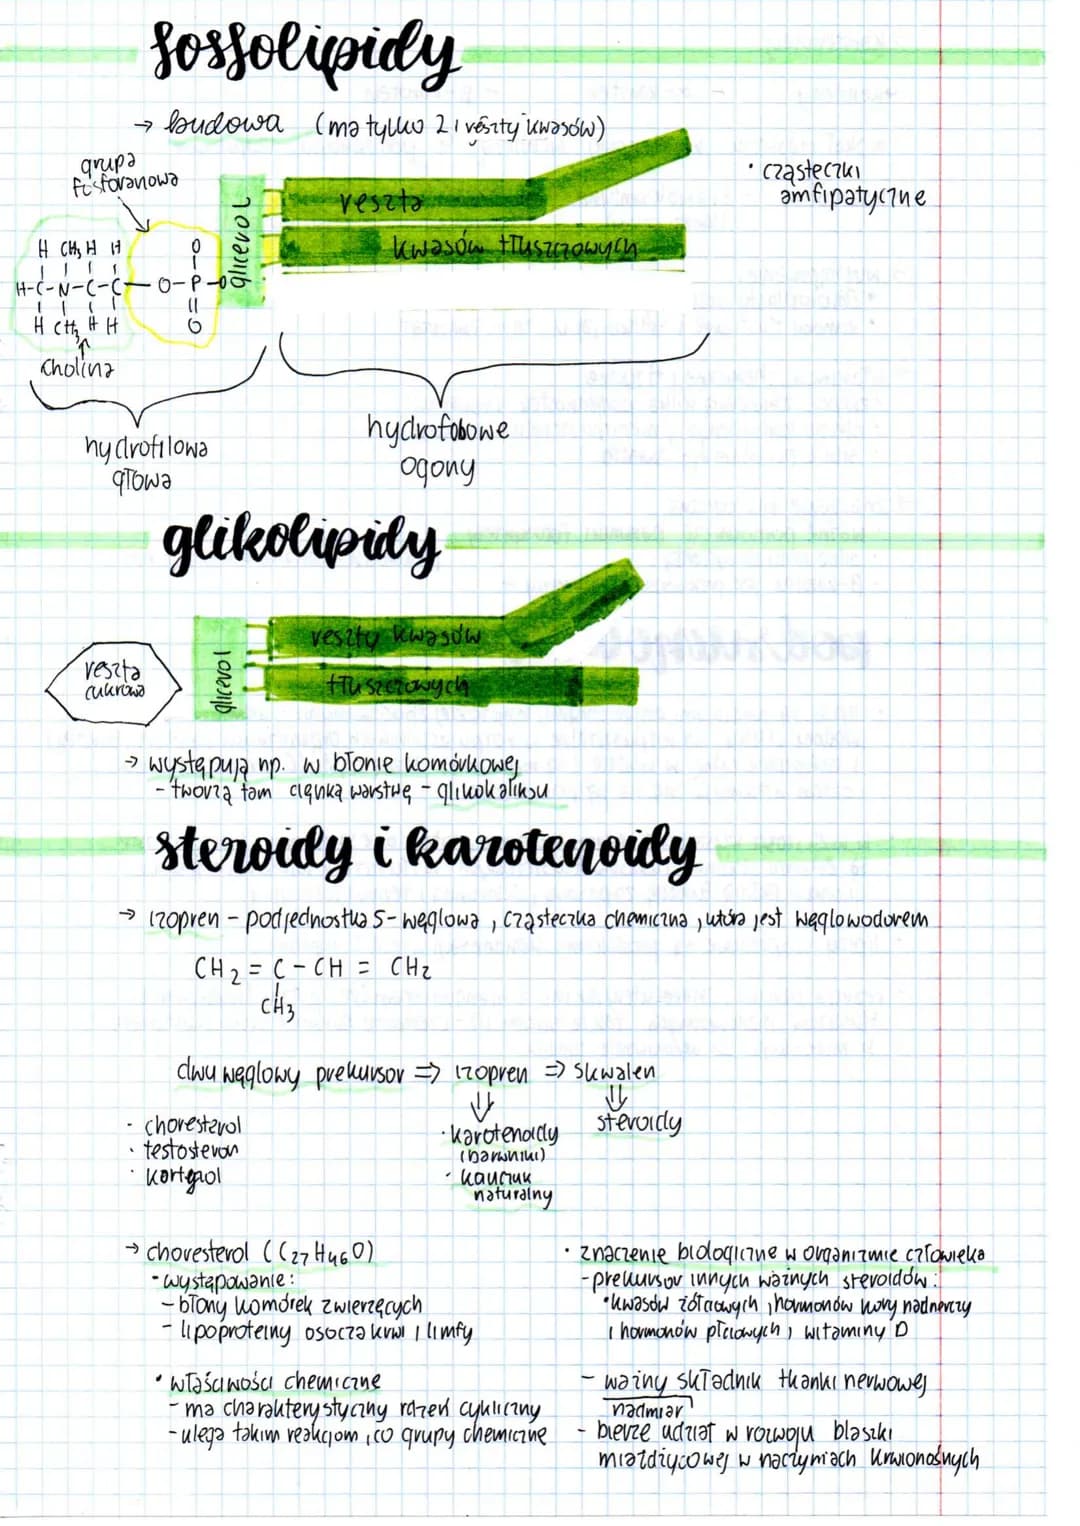 fosfolipidy
→ budowa (ma tylko 2 reszty kwasów)
grupa
fosforanowa
• cząsteczki
amfipatyczne
glicerol
reszta
kwasów tłuszczowych
H CH3 H H
H-C-N-C-C-O-P-O
H CH3 H H
O
O
cholina
hydrofilowa
głowa
hydrofobowe
ogony
glikolipidy
reszta
cukrowa
glicerol
reszty kwasów
tłuszczowych
→ występują np. w błonie komórkowej
- tworzą tam cienką warstwę - glikokaliksu
steroidy i karotenoidy
→ izopren - podjednostka 5-węglowa, cząsteczka chemiczna, która jest węglowodorem
CH2 = C - CH = CH2
CH3
dwuwęglowy prekursor ⇒ izopren ⇒ skwalen
⇓ ⇓
steroidy
• choresterol
• testosteron
• kortyzol
• karotenoidy
(barwniki)
• kauczuk
naturalny
→ choresterol (C27H46O)
• występowanie:
- błony komórek zwierzęcych
- lipoproteiny osocza krwi i limfy
• właściwości chemiczne
- ma charakterystyczny rdzeń cykliczny
- ulega takim reakcjom, co grupy chemiczne
• znaczenie biologiczne w organizmie człowieka
- prekursor innych ważnych steroidów:
• kwasów żółciowych, hormonów kory nadnerczy
i hormonów płciowych, witaminy D
- ważny składnik tkanki nerwowej
nadmiar
- bierze udział w rozwoju blaszki
miażdżycowej w naczyniach krwionośnych